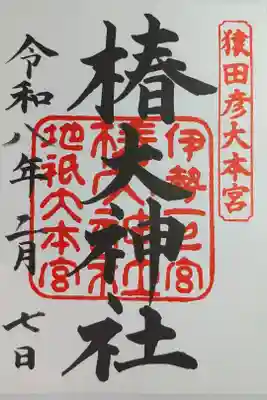 猿田彦大本宮
椿大神社
伊勢一之宮
椿大神社
地祇大本宮
令和八年 二月 七日